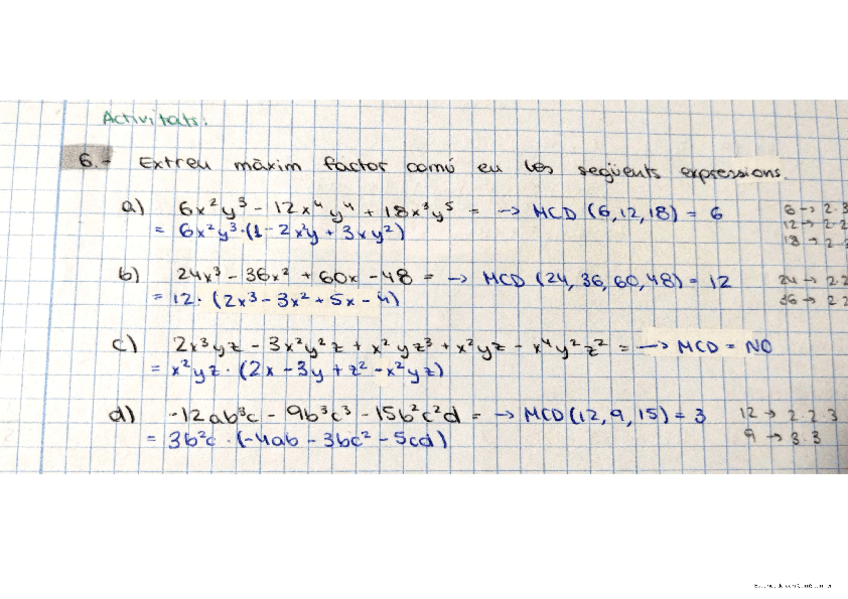 Activitats:
6.- Extreu màxim factor comú en les següents expressions.
a) 6x²y³ - 12x⁴y⁴ + 18x³y⁵ = → MCD (6,12,18) = 6
6 → 2·3
12 → 2·2
18 → 2·3
= 6x²y³·(1 - 2x²y + 3xy²)
b) 24x³ - 36x² + 60x - 48 = → MCD (24, 36, 60, 48) = 12
24 → 2·2
36 → 2·2
= 12· (2x³ - 3x² + 5x - 4)
c) 2x³yz - 3x²y²z + x²yz³ + x²yz - x⁴y²z² = → MCD = NO
= x²yz · (2x - 3y + z² - x²yz)
d) -12ab³c - 9b³c³ - 15b²c²d = → MCD (12, 9, 15) = 3
12 → 2·2·3
9 → 3·3
= 3b²c · (-4ab - 3bc² - 5cd)